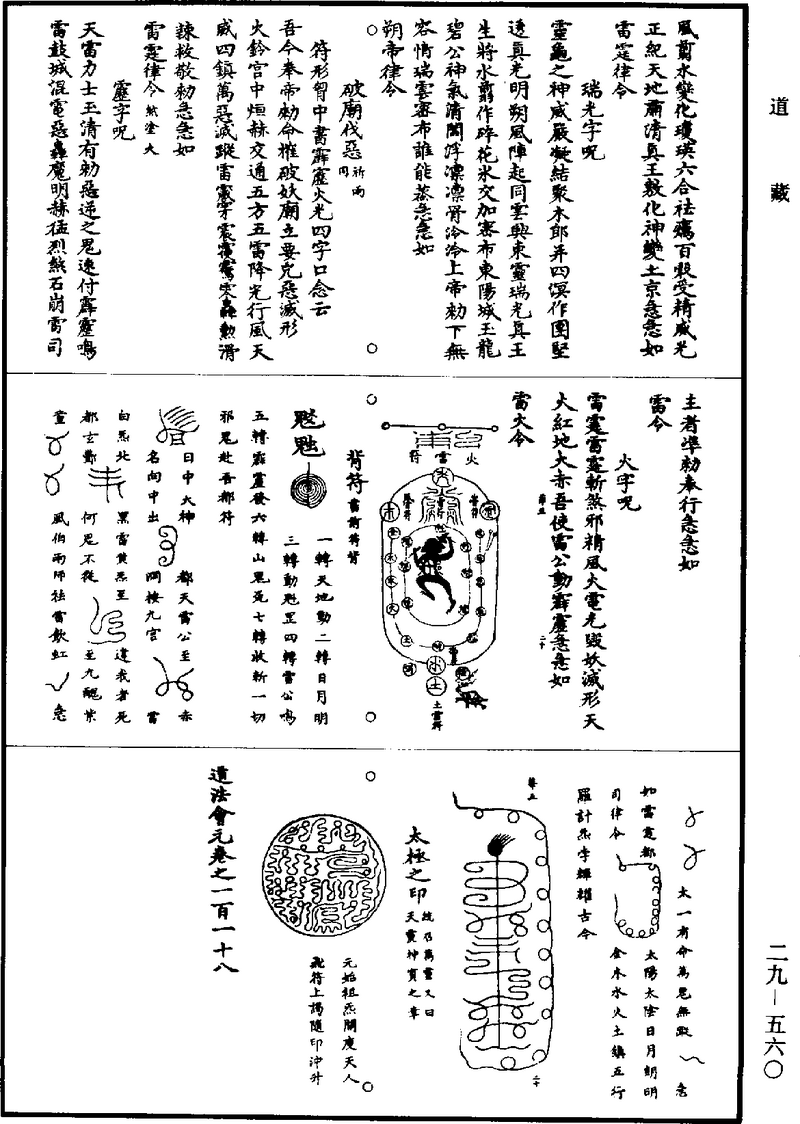 道藏
風剪水變化瓊瑛六合祛癘百穀受精威光
正紀天地肅清真王敷化神變土京急急如
雷霆律令
瑞光字呪
靈龜之神威嚴凝結聚木郎并四溟作團堅
透真光明朔風陣起同雲興東靈瑞光真王
生將水剪作碎花氷交加密布東陽城玉龍
碧公神氣清閶浮凛凛骨冷冷上帝勑下無
容情瑞雲密布誰能蒸急急如
朔帝律令
破廟伐惡 祈雨同
符形胷中書霹靂火光四字口念云
吾今奉帝勑命摧破妖廟立要兇惡滅形
火鈴宫中烜赫交通五方五雷降光行風天
威四鎮萬惡滅蹤雷
辣救敬勑急急如
雷霆律令 煞 火
靂字呪
天雷力士玉清有勑惡逆之鬼速付霹靂鳴
雷鼓城混電惡轟魔明赫猛烈煞石崩雷司
主者準勑奉行急急如
雷令
火字呪
雷霆雷霆斬煞邪精風火電光毁妖滅形天
火紅地大赤吾使雷公動霹靂急急如
雷火令
火雷符
土雷符
背符 書前符背
一轉天地動二轉日月明
三轉動魁罡四轉雷公鳴
五轉霹靂發六轉山鬼死七轉收斬一切
邪鬼赴吾都符
日中大神 都天雷公至 赤
名向中出 罡按九宫 雷
白炁北 黑雷黄炁至 違我者死
都玄鄷 何鬼不從 至九醜紫
萱 風伯雨師祛當飲虹 急
太一有命萬鬼無蹤 急
如雷霆都 太陽太陰日月朗明
司律令 金木水火土鎮五行
羅計炁孛輝耀古今
太極之印 故乃萬靈又曰天靈神實之章
元始祖炁開度天人
飛符上謁隨印沖升
道法會元卷之一百一十八
二九—五六〇